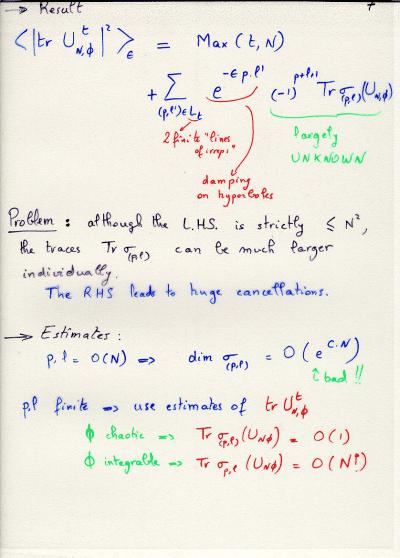 → Result
<|tr U^t_{N,ϕ}|²>_ϵ = Max (t, N)
+ Σ_{(p,l')∈L_t} e^{-ϵ p.l'} (-1)^{p+l'+1} Tr σ_{(p,l')}(U_{N,ϕ})
2 finite "lines of irreps"
largely
UNKNOWN
damping
on hyperboles
Problem : although the L.H.S. is strictly ≤ N²,
the traces Tr σ_{(p,l)} can be much larger
individually.
The RHS leads to huge cancellations.
→ Estimates :
p, l = O(N) => dim σ_{(p,l)} = O(e^{C.N})
↑ bad !!
p,l finite => use estimates of tr U^t_{N,ϕ}
ϕ chaotic => Tr σ_{(p,l)}(U_{Nϕ}) = O(1)
ϕ integrable => Tr σ_{p,l}(U_{Nϕ}) = O(N^?)